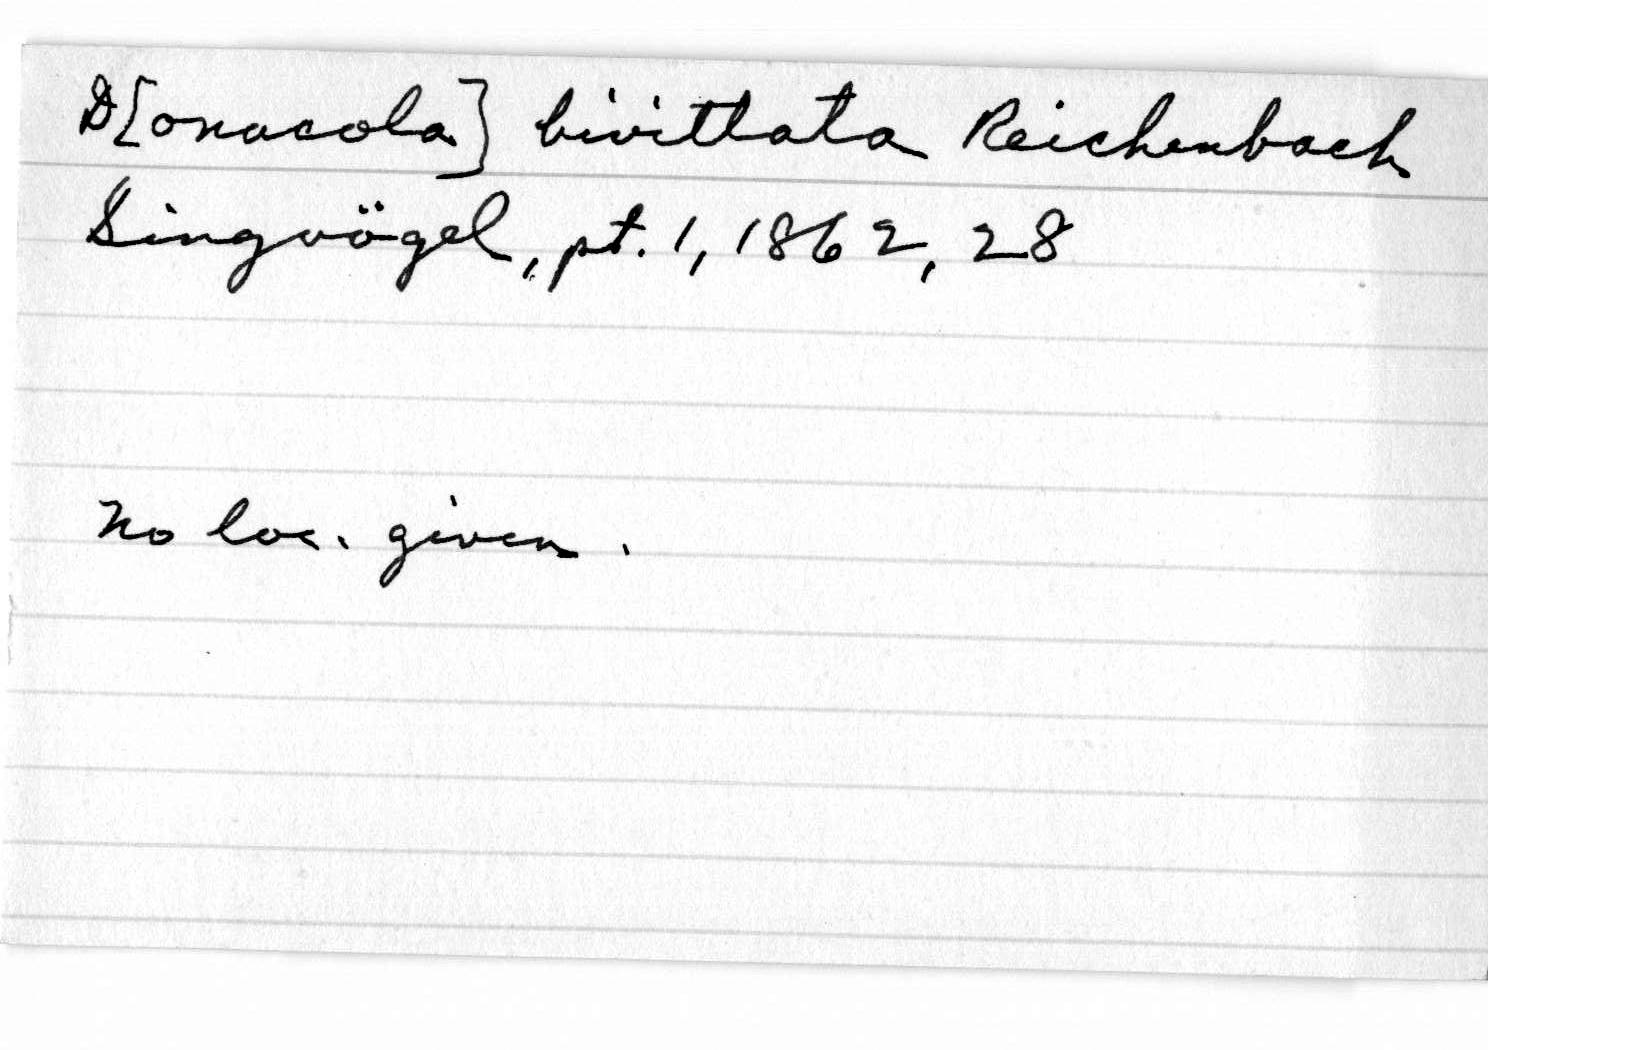 D[onacola] bivittata Reichenbach
Singvögel, pt. 1, 1862, 28
No loc. given.